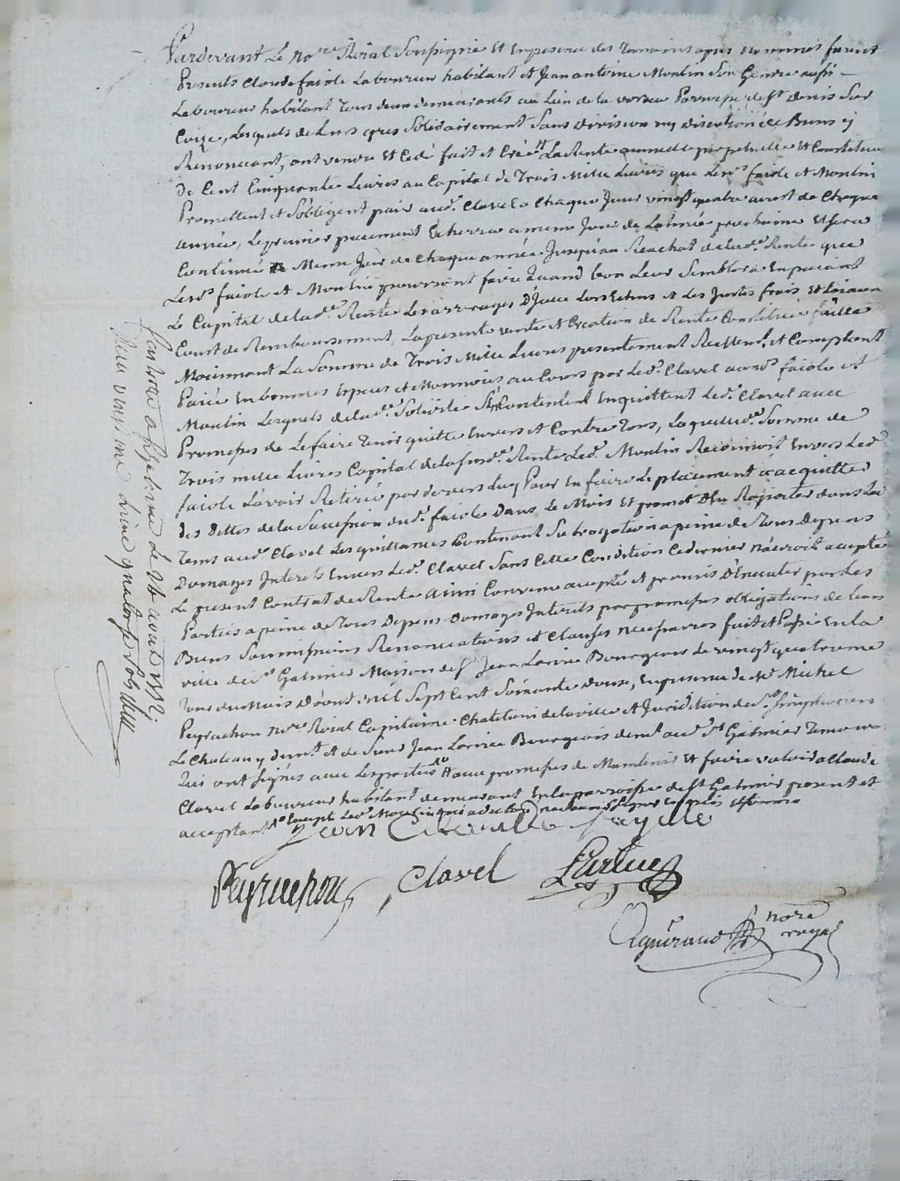 Pardevant Le no.re Roial Soussigné Et En presence des Temoins apres Nommés furent
Presents Claude faiole Laboureur habitant et Jean antoine Moulin Son Gendre aussi
Laboureur habitant Tous deux demeurants au Lieu de la Parroisse de St denis Sur
Coize, Lesquels de Leurs grés Solidairement Sans division ny discution de Biens y
Renoncant, ont vendu Et Cedé fait et Créé La Rente annuelle perpetuelle et Constituée
De Cent Cinquante Livres au Capital de Trois Mille Livres que Les.d faiole et Moulin
Promettent et S'obligent paier aud. Clavel a Chaque Jour vingt quatre aoust de Chaque
année, Le premier paiement Echerra a meme Jour de L'année prochaine et Sera
Continué a Meme Jour de Chaque année Jusqu'au Reachat de lad. Rente que
Lesd. faiole et Moulin pourront faire Quand bon Leur Semblera En paiant
Le Capital de lad. Rente Les arrerages D'jcelle Lors Echus et Les Justes frais et Loiaux
Couts de Remboursement, La presente vente et Creation de Rente Constituée faitte
Moiennant La Somme de Trois Mille Livres presentement Reellem.t et Comptant
Paiée En bonnes Especes et Monnoies au Cours par Led. Clavel auxd. faiole et
Moulin Lesquels de lad. Solidité S'En Contentent En quittent Led. Clavel avec
Promesses de Le faire Tenir quitte Envers et Contre Tous, Laquelle d. Somme de
Trois mille Livres Capital de la Susd. Rente Led. Moulin Reconnoit Envers Led.
faiole L'avoir Retirée pardevers Luy Pour En faire Le placement a acquitter
des Dettes de la Succession dud. faiole Dans Le Mois Et promet D'En Raporter dans Led.
Tems aud. Clavel Les quittances Contenant Subrogation a peine de Tous Depens
Domages Interets Envers Led. Clavel Sans Cette Condition Ce dernier N'auroit accepté
Le present Contrat de Rente ainsi Convenu accepté et promis D'Executer par Les
Parties a peine de Tous Depens Domages Interets par promesses obligations de Leurs
Biens Soumissions Renonciations et Clauses necessaires fait et Passé En la
ville de St Galmier Maison de Sr Jean Bourgeois Le vingt quatrieme
Jour du Mois D'aoust Mil Sept Cent Soixante Douze, En presence de Me Michel
Peyrachon no.re Roial Capitaine Chatelain de la ville et Juridiction de
Le Chateau y dem.t et de Sieur Jean Bourgeois dem.t aud. St Galmier Temoins
Qui ont Signés avec Les parties avec promesses de Maintenir et faire valoir a Claude
Clavel Laboureur habitant demeurant En la parroisse de St Galmier present et
acceptant Excepté Led. Moulin qui a declaré ne Savoir Signer Enquis et Somme
Faÿole
Peyrachon Clavel
nore
royal
Controlé a St Galmier Le 26 aoust 1772